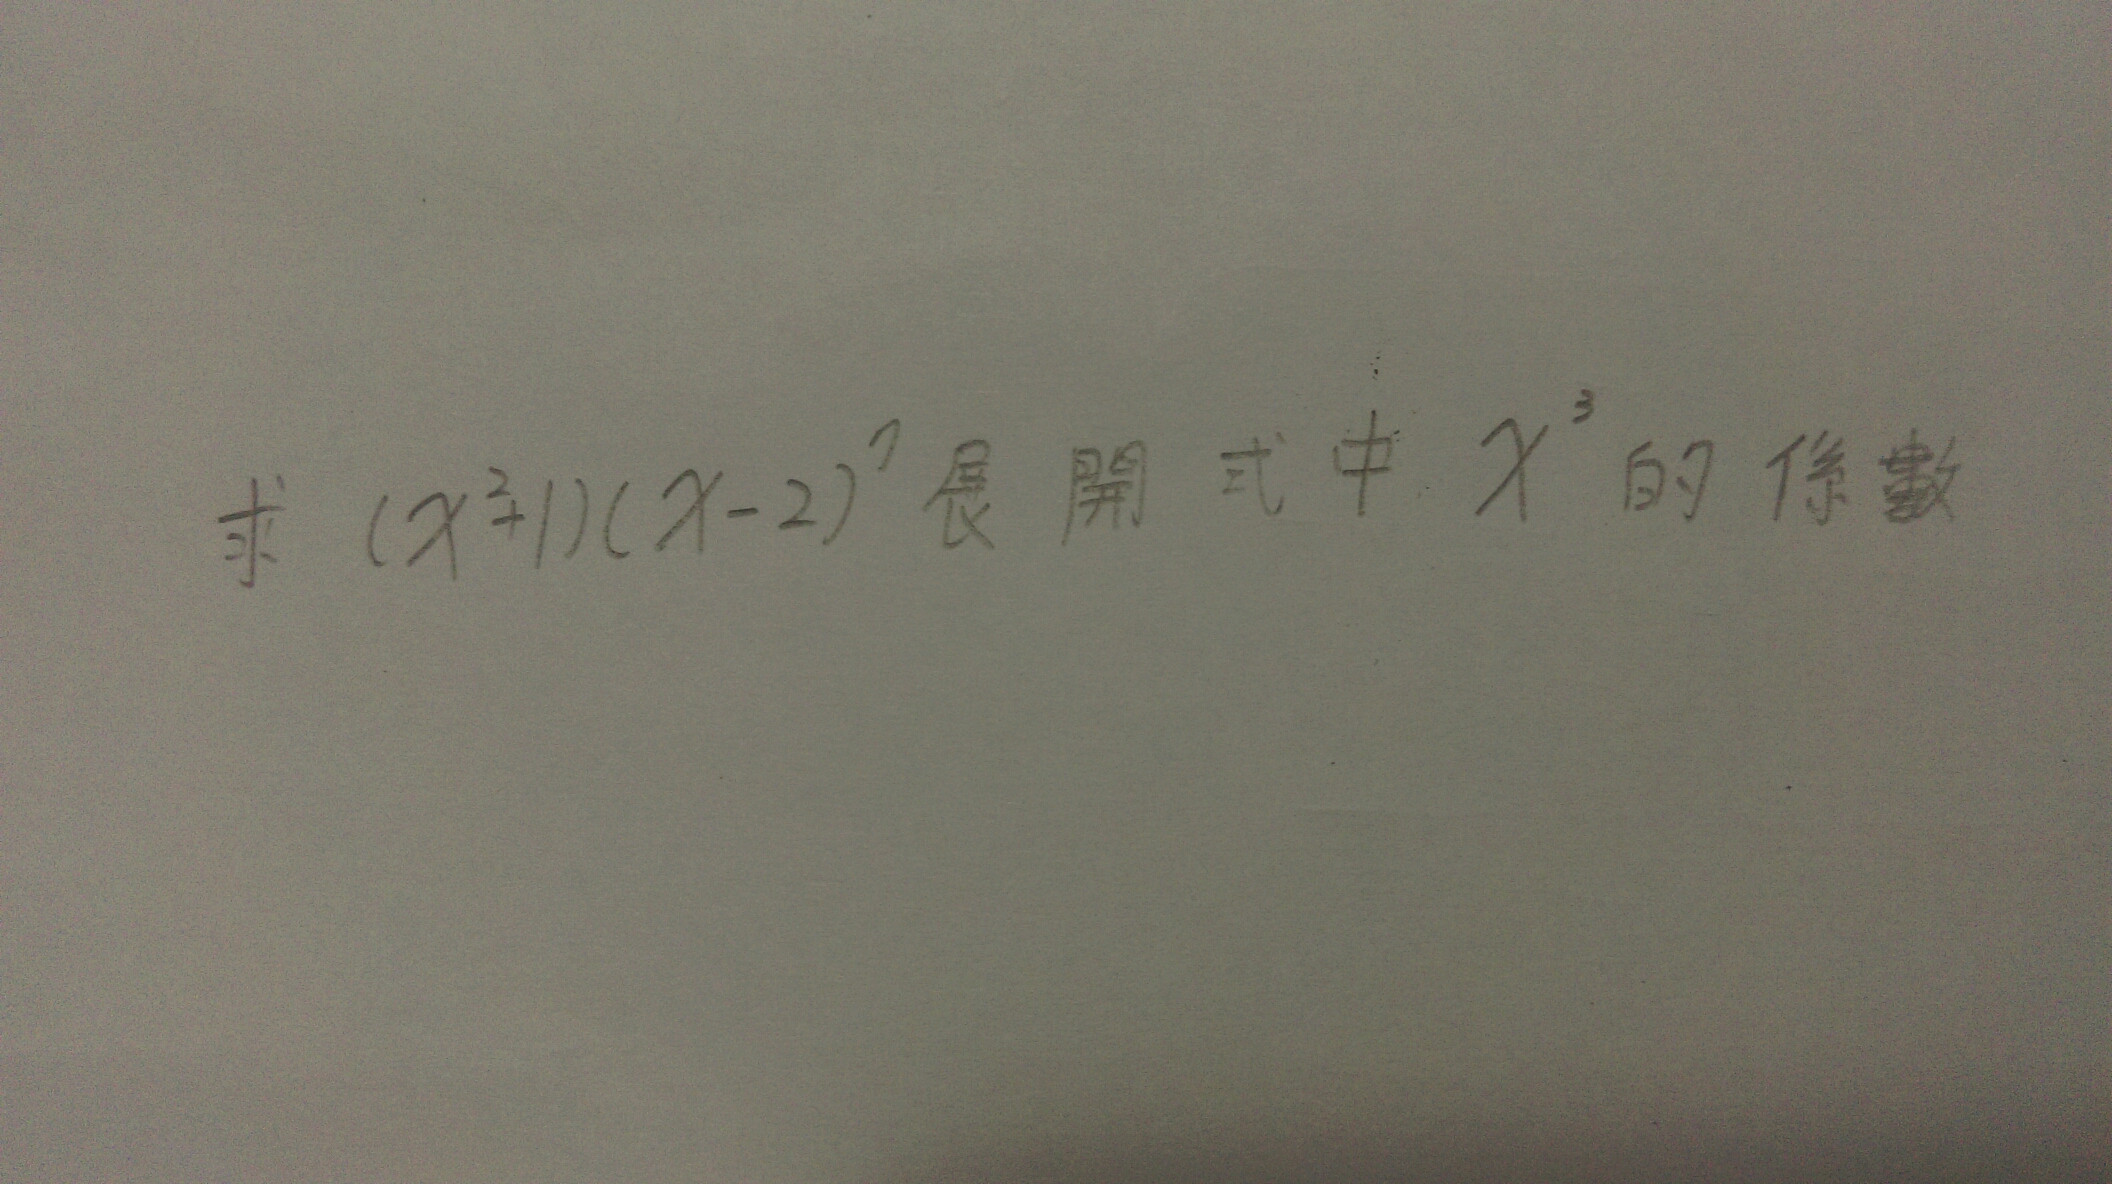 求 (x²+1)(x-2)⁷ 展開式中 x³ 的係數